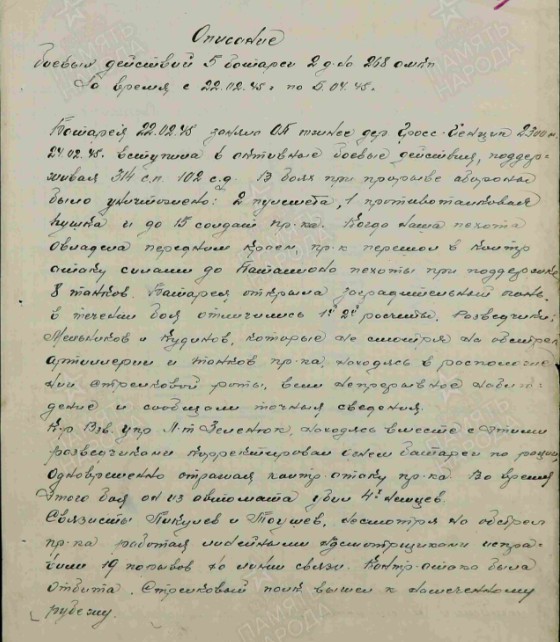 Описание
боевых действий 5 батареи 2 д-на 268 омкп
За время с 22.02.45 г по 5.04.45.
Батарея 22.02.45 заняла ОП южнее дер. Гросс-
24.02.45. вступила в активные боевые действия, поддер-
живая 314 с.п. 102 с.д. В боях при прорыве обороны
было уничтожено: 2 пулемета, 1 противотанковая
пушка и до 15 солдат пр-ка. Когда наша пехота
овладела передним краем, пр-к перешел в контр
атаку силами до батальона пехоты при поддержке
8 танков. Батарея открыла заградительный огонь,
в течении боя отличились 1й 2й расчеты. Разведчики:
Мельников и Кудинов, которые не смотря на обстрел
артиллерии и танков пр-ка, находясь в расположе-
нии стрелковой роты, вели непрерывное наблю-
дение и сообщали точныя сведения.
К-р Взв. упр Л-т Зеленюк, находясь вместе с этими
разведчиками корректировал огнем батареи по рации,
одновременно отражая контр-атаку пр-ка. Во время
этого боя он из автомата убил 4х немцев.
Связисты Пикулев и Тоушев, несмотря на обстрел
пр-ка работая линейными надсмотрщиками испра-
вили 19 порывов на линии связи. Контр-атака была
отбита. Стрелковый полк вышел к намеченному
рубежу.
ПАМЯТЬ
НАРОДА